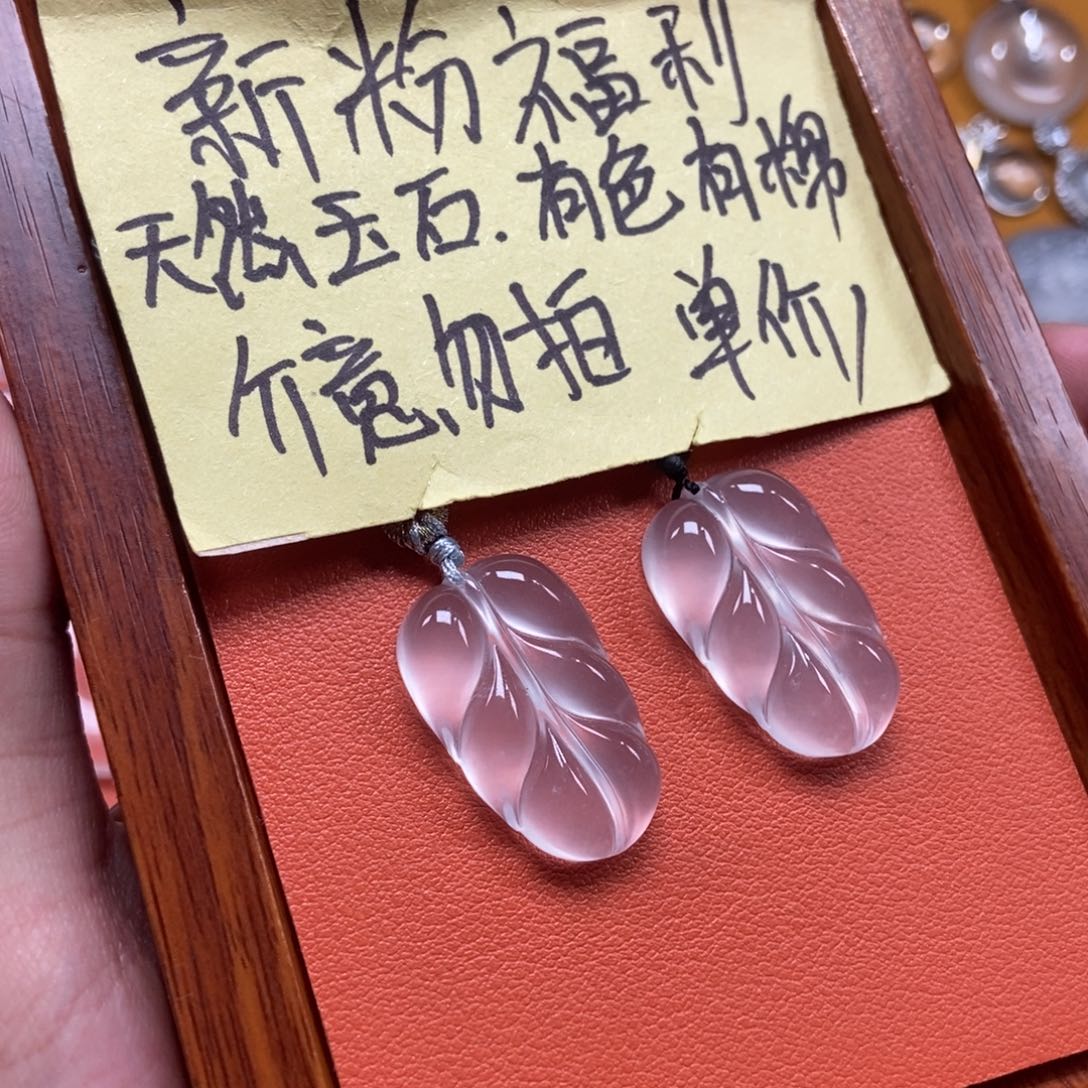 新粉福利
天然玉石.有色有棉
介意勿拍 单价1